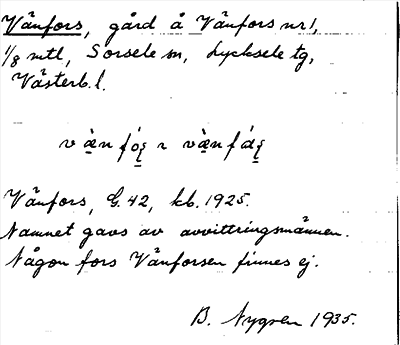 Vänfors, gård å Vänfors nr 1,
1/8 mtl, Sorsele sn, Lycksele tg,
Västerb. l.
Vänfors, G. 42, kb. 1925.
Namnet gavs av avvittringsmännen.
Någon fors Vänforsen finnes ej.
B. Nygren 1935.